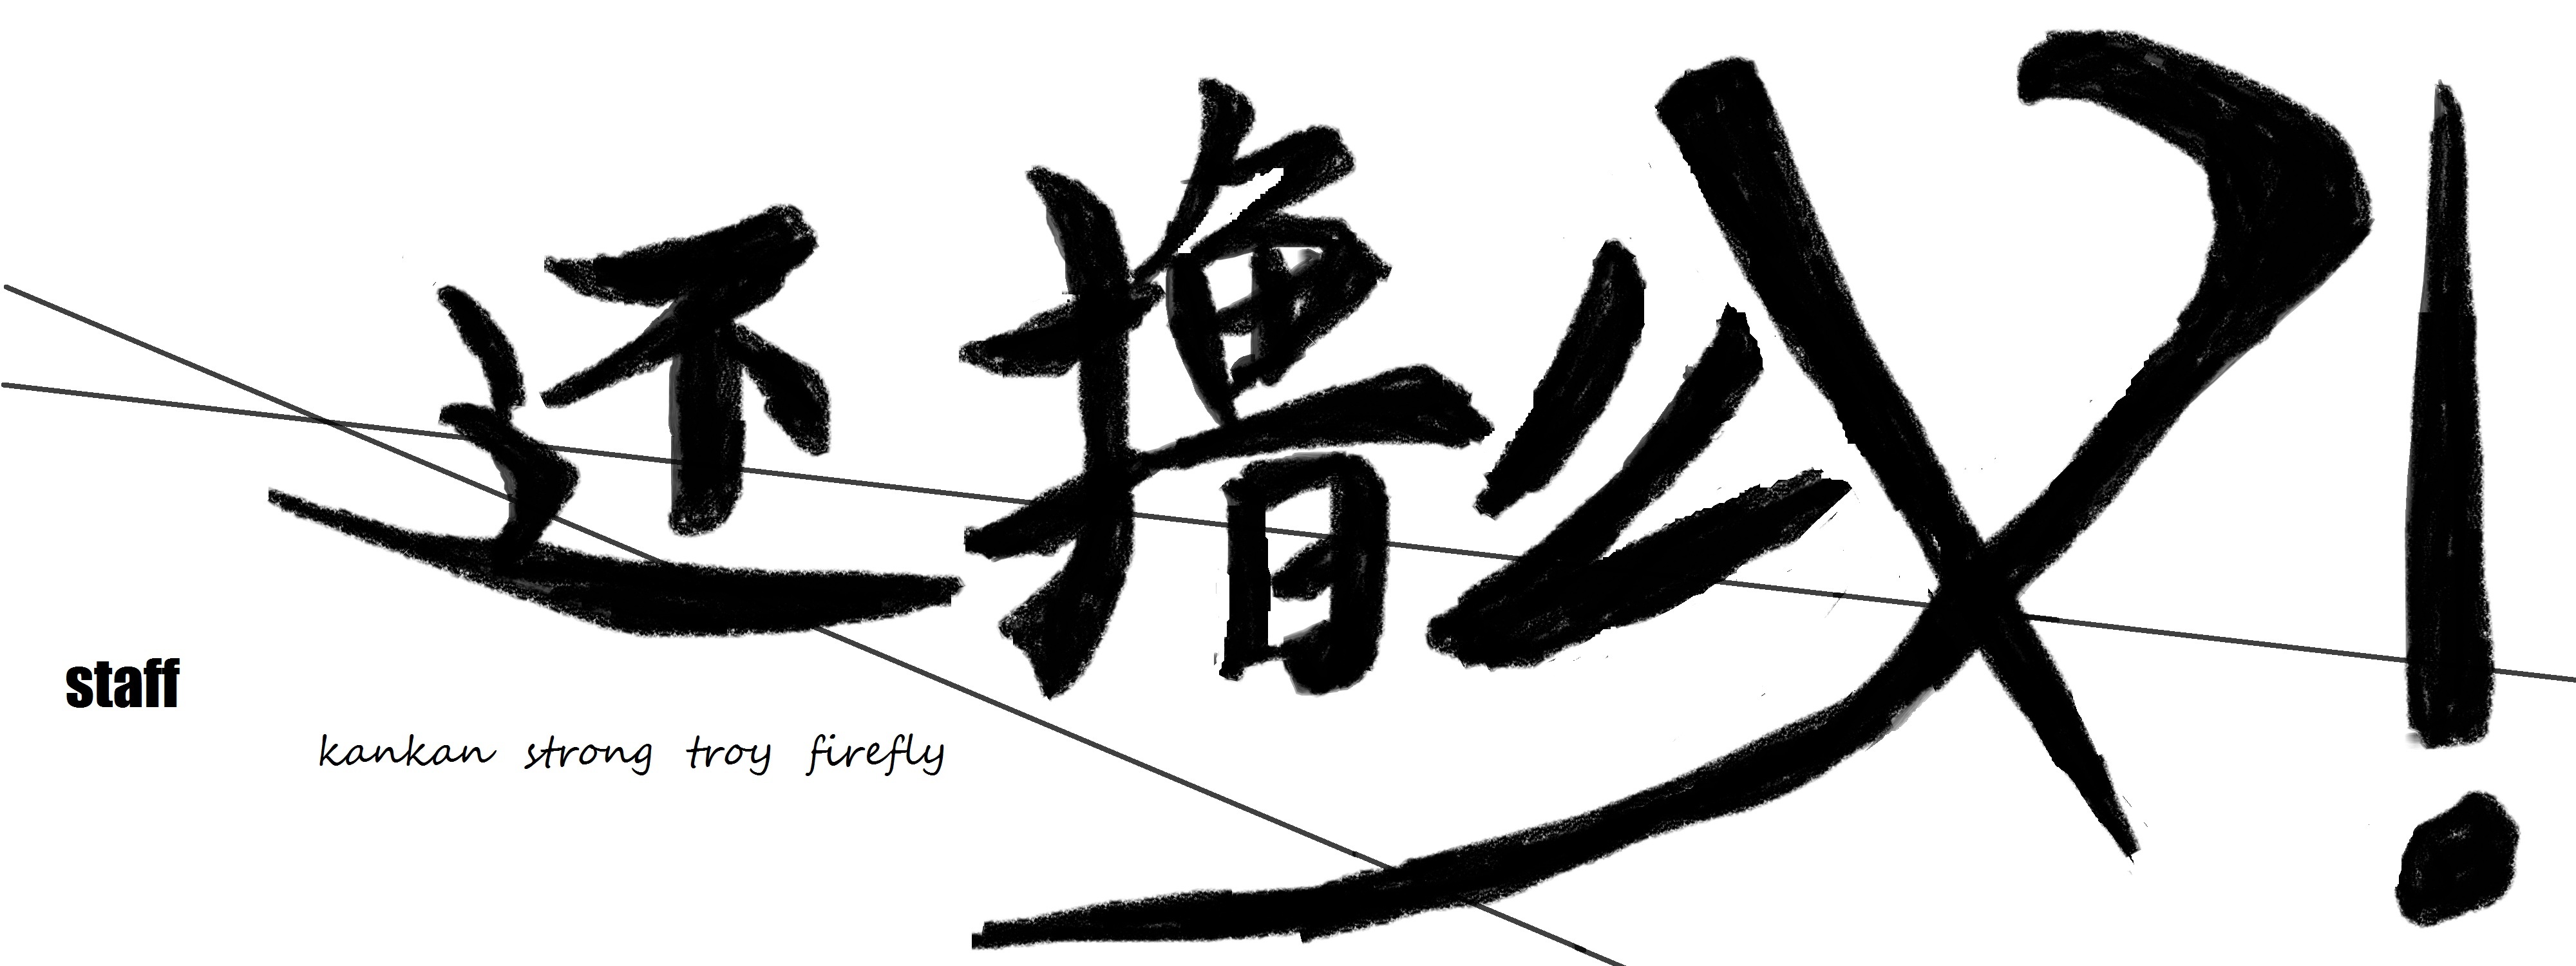 还撸么?!
staff
kankan strong troy firefly